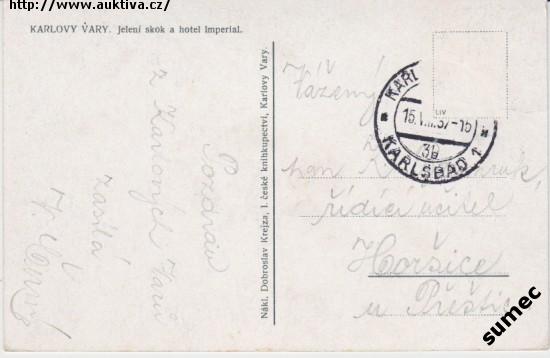 http://www.auktiva.cz/
KARLOVY VARY. Jelení skok a hotel Imperial.
Pozdrav
z Karlových Varů
zasílá
Nákl. Dobroslav Krejza, I. české knihkupectví, Karlovy Vary.
KARL
15.V 37-15
3b
KARLSBAD 1
LIV
Vážený
pan
řídící učitel
Horšice
u Přeštic
sumec